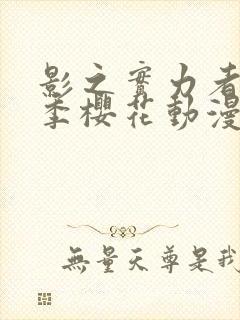 影之實力者
季櫻花動漫
無量天尊是我